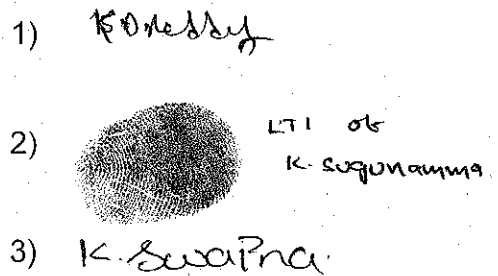 1) K D Reddy
2)
LTI of
K. Sugunamma
3) K. Swapna.